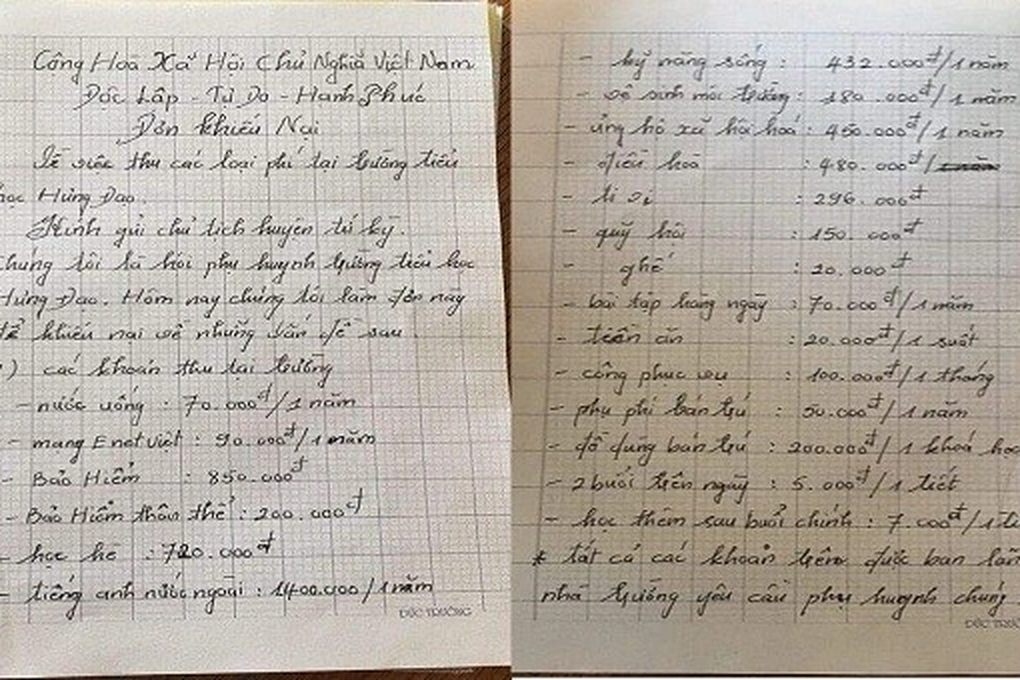 Cộng Hoà Xã Hội Chủ Nghĩa Việt Nam
Độc Lập - Tự Do - Hạnh Phúc
Đơn khiếu Nại
Về việc thu các loại phí tại trường tiểu
học Hưng Đạo.
Kính gửi chủ tịch huyện tứ kỳ.
Chúng tôi là hội phụ huynh trường tiểu học
Hưng Đạo. Hôm nay chúng tôi làm đơn này
để khiếu nại về những vấn đề sau.
) các khoản thu tại trường
- nước uống : 70.000đ/1 năm
- mạng Enetviệt : 90.000đ/1 năm
- Bảo Hiểm : 850.000đ
- Bảo Hiểm thân thể : 200.000đ
- học hè : 720.000đ
- tiếng anh nước ngoài : 1400.000/1 năm
ĐỨC TRƯỜNG
- kỹ năng sống : 432.000đ/1 năm
- vệ sinh môi trường : 180.000đ/1 năm
- ủng hộ xã hội hoá : 450.000đ/1 năm
- điều hoà : 480.000đ/
- ti vi : 296.000đ
- quỹ hội : 150.000đ
- ghế : 20.000đ
- bài tập hàng ngày : 70.000đ/1 năm
- tiền ăn : 20.000đ/1 suất
- công phục vụ : 100.000đ/1 tháng
- phụ phí bán trú : 50.000đ/1 năm
- đồ dùng bán trú : 200.000đ/1 khoá học
- 2 buổi trên ngày : 5.000đ/1 tiết
- học thêm sau buổi chính : 7.000đ/1 tiế
* tất cả các khoản trên được ban lãn
nhà trường yêu cầu phụ huynh chúng
ĐỨC TRƯỜ